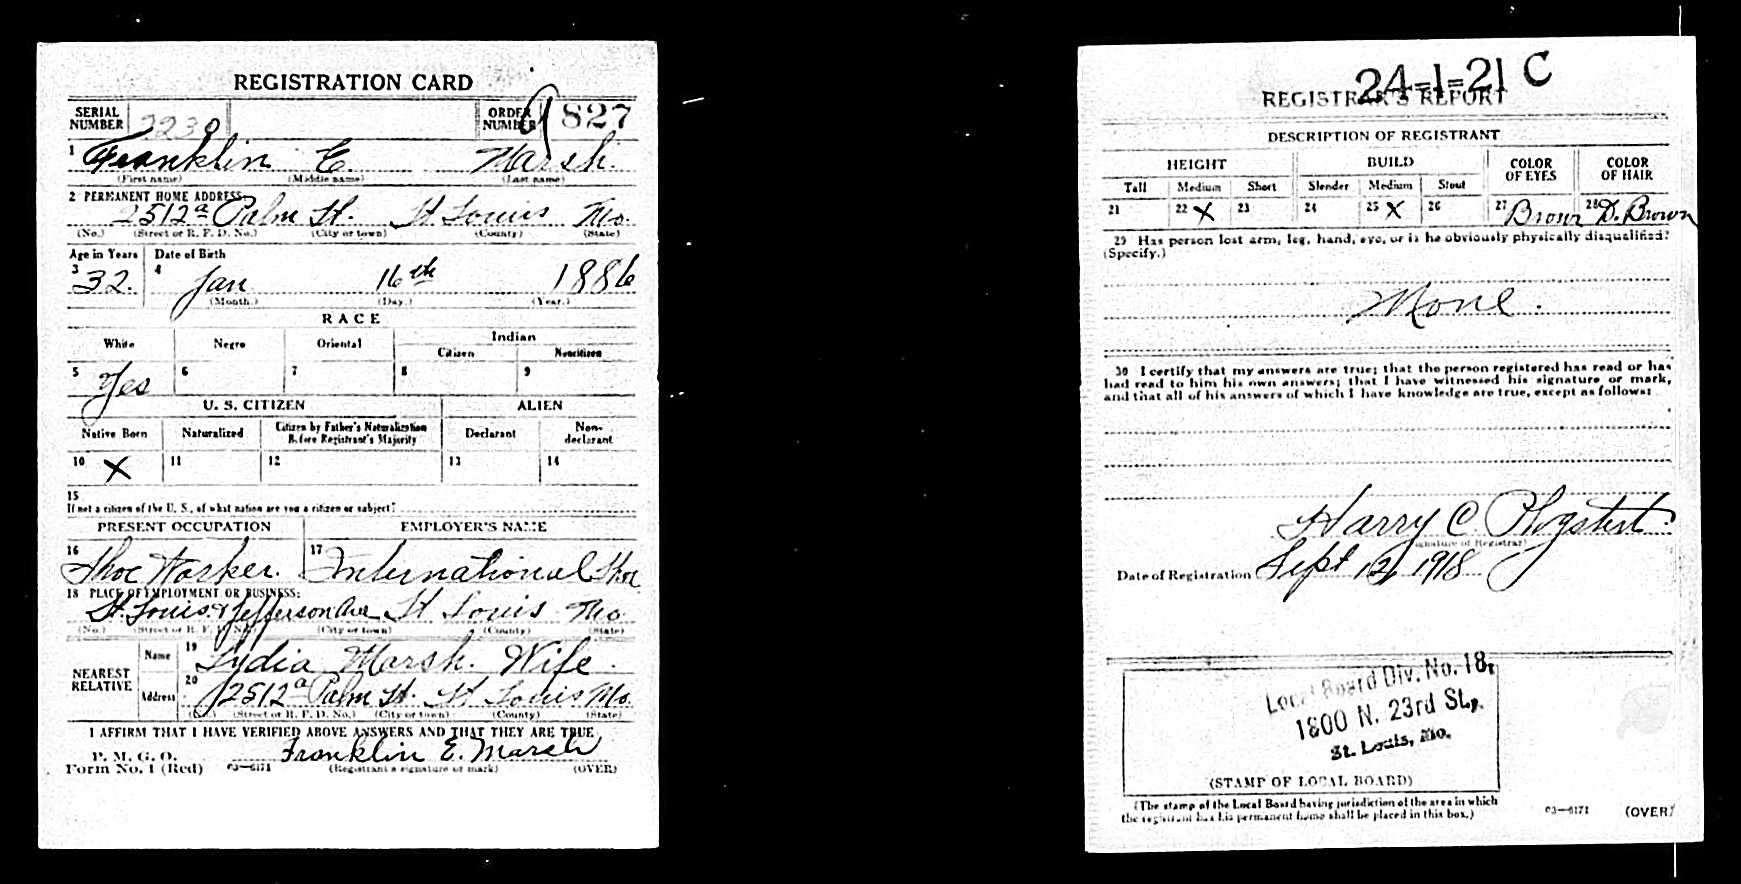 REGISTRATION CARD
SERIAL NUMBER 2230 ORDER NUMBER 827
1 Franklin E Marsh
(First name) (Middle name) (Last name)
2 PERMANENT HOME ADDRESS:
2512a Palm St. St Louis Mo.
(No.) (Street or R. F. D. No.) (City or town) (County) (State)
Age in Years Date of Birth
3 32. 4 Jan 16th 1886
(Month.) (Day.) (Year.)
RACE
White Negro Oriental Indian
Citizen Noncitizen
5 Yes 6 7 8 9
U. S. CITIZEN ALIEN
Native Born Naturalized Citizen by Father's Naturalization Before Registrant's Majority Declarant Non-declarant
10 X 11 12 13 14
15
If not a citizen of the U. S., of what nation are you a citizen or subject?
PRESENT OCCUPATION EMPLOYER'S NAME
16 Shoe Worker. 17 International Shoe
18 PLACE OF EMPLOYMENT OR BUSINESS:
St. Louis & Jefferson Ave St Louis Mo
(No.) (Street or R. F. D. No.) (City or town) (County) (State)
NEAREST RELATIVE
Name 19 Lydia Marsh. Wife.
Address 20 2512a Palm St. St Louis Mo.
(No.) (Street or R. F. D. No.) (City or town) (County) (State)
I AFFIRM THAT I HAVE VERIFIED ABOVE ANSWERS AND THAT THEY ARE TRUE
P. M. G. O.
Form No. 1 (Red) 03—6171 Franklin E. Marsh
(Registrant's signature or mark) (OVER)
24-1-21 C
REGISTRAR'S REPORT
DESCRIPTION OF REGISTRANT
HEIGHT BUILD COLOR OF EYES COLOR OF HAIR
Tall Medium Short Slender Medium Stout
21 22 X 23 24 25 X 26 27 Brown 28 D. Brown
29 Has person lost arm, leg, hand, eye, or is he obviously physically disqualified?
(Specify.)
None.
30 I certify that my answers are true; that the person registered has read or has
had read to him his own answers; that I have witnessed his signature or mark,
and that all of his answers of which I have knowledge are true, except as follows:
Harry C.
(Signature of Registrar)
Date of Registration Sept 12, 1918
Local Board Div. No. 18,
1800 N. 23rd St.,
St. Louis, Mo.
(STAMP OF LOCAL BOARD)
(The stamp of the Local Board having jurisdiction of the area in which
the registrant has his permanent home shall be placed in this box.)
03—6171 (OVER)